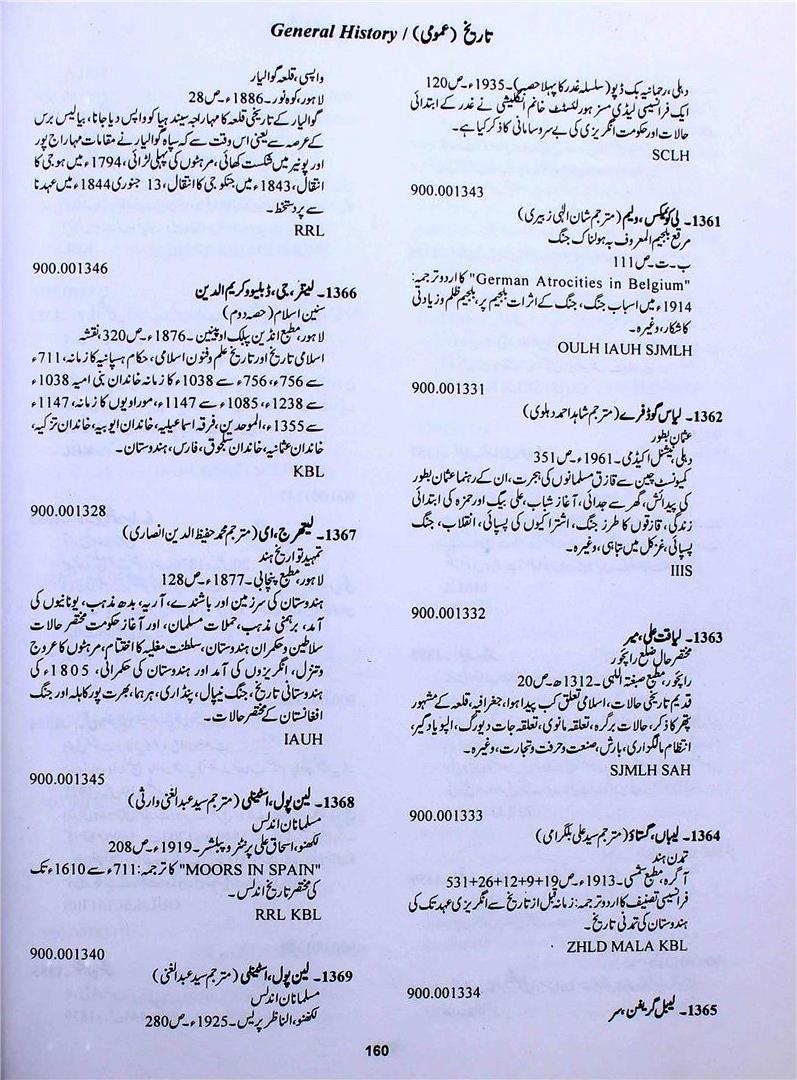 تاریخ (عمومی) / General History
دہلی، رحمانیہ بک ڈپو (سلسلہ غدر کا پہلا حصہ)۔ 1935ء۔ ص120
ایک فرانسیسی لیڈی مسز ہورلسٹسٹ خانم انگلیشی نے غدر کے ابتدائی
حالات اور حکومت انگریزی کی بے سروسامانی کا ذکر کیا ہے۔
SCLH
900.001343
1361۔ لی کوئیکس، ولیم (مترجم شان الٰہی زبیری)
مرقع بلجیم المعروف بہ ہولناک جنگ
ب۔ت۔ ص111
"German Atrocities in Belgium" کا اردو ترجمہ:
1914ء میں اسباب جنگ، جنگ کے اثرات بلجیم پر، بلجیم ظلم و زیادتی
کا شکار، وغیرہ۔
OULH IAUH SJMLH
900.001331
1362۔ لیاس گوڈفرے (مترجم شاہد احمد دہلوی)
عثمان بطور
دہلی، نیشنل اکیڈمی۔ 1961ء۔ ص351
کمیونسٹ چین سے قازق مسلمانوں کی ہجرت، ان کے رہنما عثمان بطور
کی پیدائش، گھر سے جدائی، آغاز شباب، علی بیگ اور حمزہ کی ابتدائی
زندگی، قازقوں کا طرز جنگ، اشتراکیوں کی پسپائی، انقلاب، جنگ
پسپائی، غزکل میں تباہی، وغیرہ۔
IIIS
900.001332
1363۔ لیاقت علی، میر
مختصر حال ضلع رائچور
رائچور، مطبع صبغۃ اللہی۔ 1312ھ۔ ص20
قدیم تاریخی حالات، اسلامی تعلق کب پیدا ہوا، جغرافیہ، قلعہ کے مشہور
پتھر کا ذکر، حالات برگرہ، تعلقہ مانوی، تعلقہ جات دیورگ، الپو یادگیر،
انتظام مالگواری، بارش، صنعت و حرفت و تجارت، وغیرہ۔
SJMLH SAH
900.001333
1364۔ لیبان، گستاؤ (مترجم سید علی بلگرامی)
تمدن ہند
آگرہ، مطبع شمسی۔ 1913ء۔ ص19+9+12+26+531
فرانسیسی تصنیف کا اردو ترجمہ: زمانہ قبل از تاریخ سے انگریزی عہد تک کی
ہندوستان کی تمدنی تاریخ۔
ZHLD MALA KBL
900.001334
1365۔ لیپل گریفن، سر
واپسی، قلعہ گوالیار
لاہور، کوہ نور۔ 1886ء۔ ص28
گوالیار کے تاریخی قلعہ کا مہاراجہ سیندہیا کو واپس دیا جانا، بیالیس برس
کے عرصہ سے یعنی اس وقت سے کہ سپاہ گوالیار نے مقامات مہاراج پور
اور پونیر میں شکست کھائی، مرہٹوں کی پہلی لڑائی، 1794ء میں ہوجی کا
انتقال، 1843ء میں جنکوجی کا انتقال، 13 جنوری 1844ء میں عہدنا
سے پر دستخط۔
RRL
900.001346
1366۔ لیتفر، جی، ڈبلیو و کریم الدین
سنین اسلام (حصہ دوم)
لاہور، مطبع انڈین پبلک اوپینین۔ 1876ء۔ ص320، نقشہ
اسلامی تاریخ اور تاریخ علم و فنون اسلامی، حکام ہسپانیہ کا زمانہ، 711ء
سے 756ء، 756ء سے 1038ء کا زمانہ خاندان بنی امیہ 1038ء
سے 1238ء، 1085ء سے 1147ء، مورادیوں کا زمانہ، 1147ء
سے 1355ء، الموحدین، فرقہ اسماعیلیہ، خاندان ایوبیہ، خاندان ترکیہ،
خاندان عثمانیہ، خاندان سلجوق، فارس، ہندوستان۔
KBL
900.001328
1367۔ لیتھبرج، ای (مترجم محمد حفیظ الدین انصاری)
تمہید تواریخ ہند
لاہور، مطبع پنجابی۔ 1877ء۔ ص128
ہندوستان کی سرزمین اور باشندے، آریہ، بدھ مذہب، یونانیوں کی
آمد، برہمنی مذہب، حملات مسلمان، اور آغاز حکومت مختصر حالات
سلاطین و حکمران ہندوستان، سلطنت مغلیہ کا اختتام، مرہٹوں کا عروج
و تنزل، انگریزوں کی آمد اور ہندوستان کی حکمرانی، 1805ء کی
ہندوستانی تاریخ، جنگ نیپال، پنڈاری، برہما، بھرت پور کابلہ اور جنگ
افغانستان کے مختصر حالات۔
IAUH
900.001345
1368۔ لین پول، اسٹینلی (مترجم سید عبدالغنی وارثی)
مسلمانان اندلس
لکھنؤ، اسحاق علی پرنٹر و پبلشر۔ 1919ء۔ ص208
"MOORS IN SPAIN" کا ترجمہ: 711ء سے 1610ء تک
کی مختصر تاریخ اندلس۔
RRL KBL
900.001340
1369۔ لین پول، اسٹینلی (مترجم سید عبدالغنی)
مسلمانان اندلس
لکھنؤ، الناظر پریس۔ 1925ء۔ ص280
160